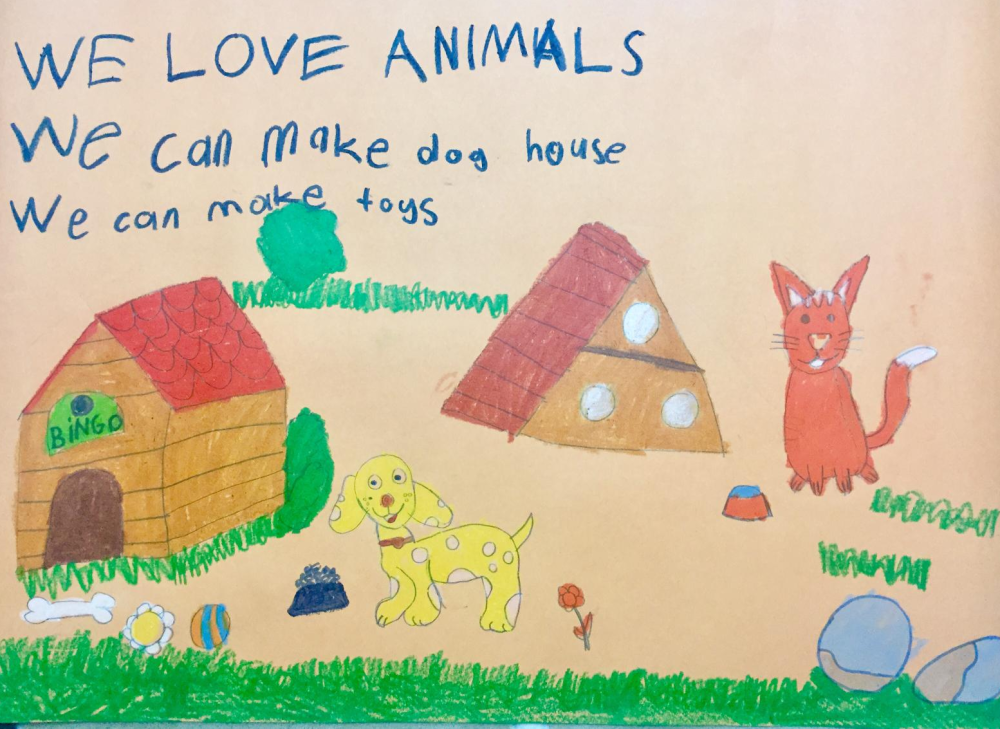 WE LOVE ANIMALS
We can make dog house
We can make toys
BiNGO